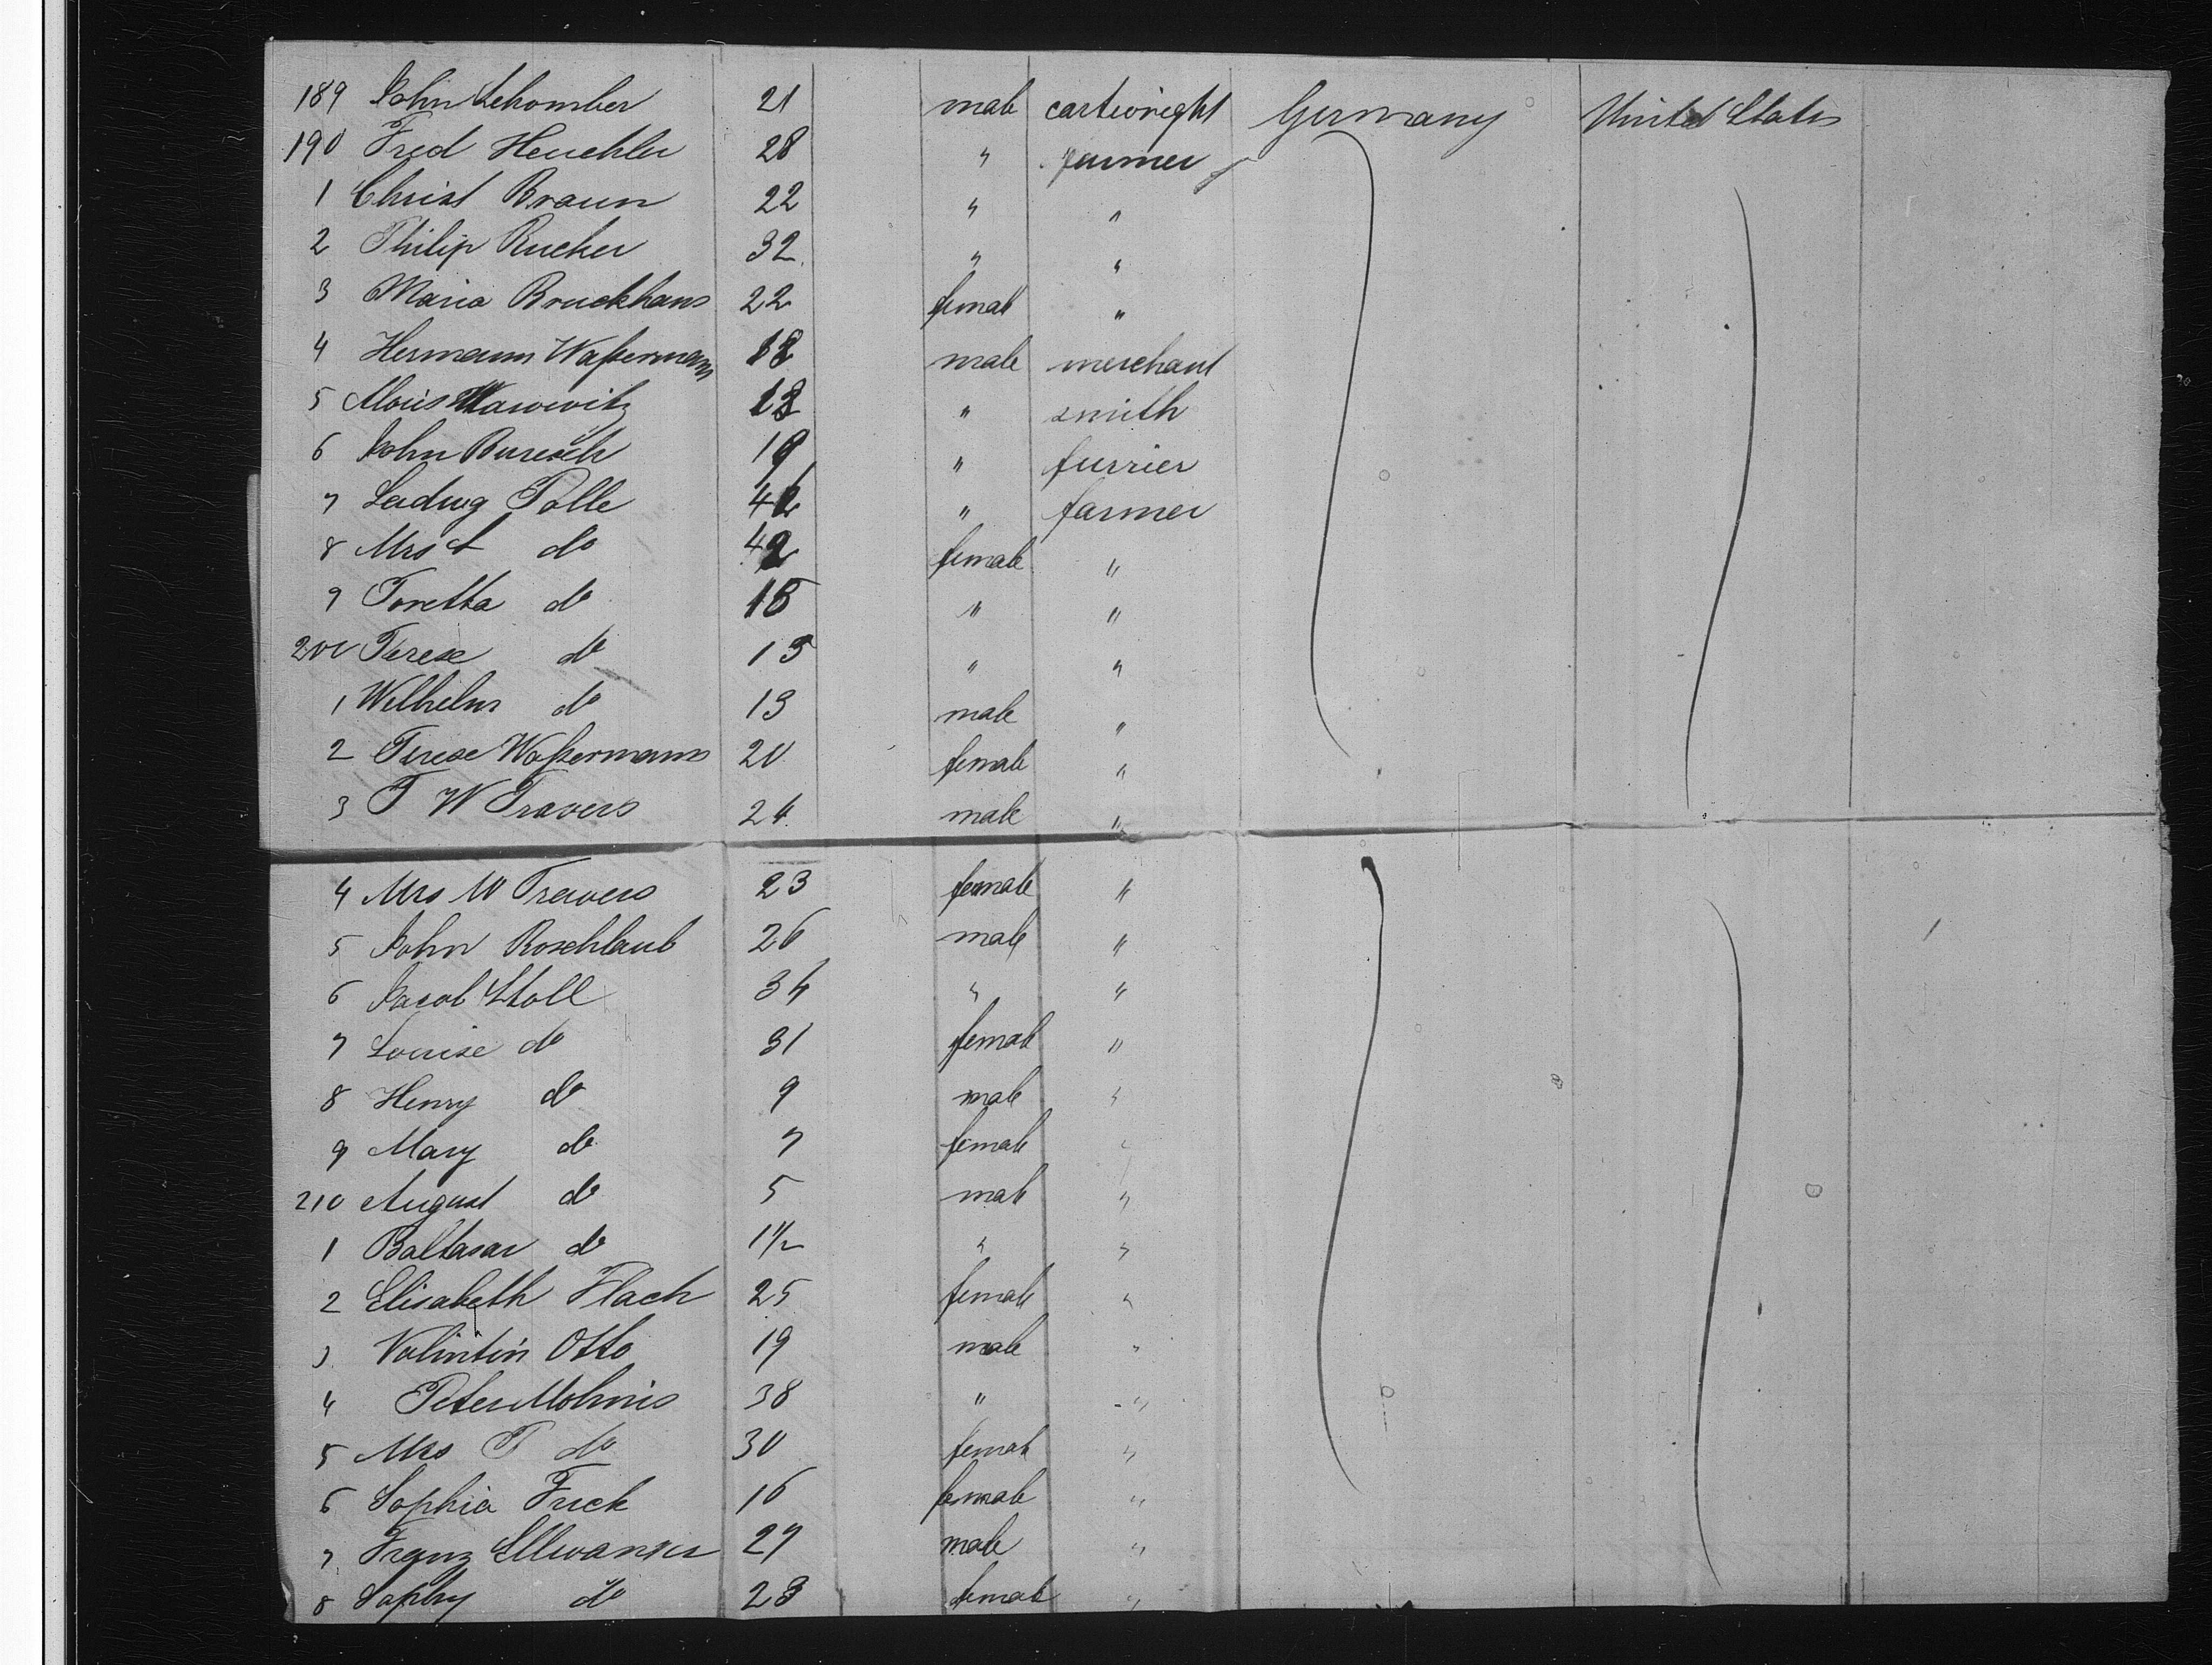 189 John Schomber 21 male cartwright Germany United States
190 Fred Heuchler 28 " farmer
1 Christ Braun 22 " "
2 Philip Rucker 32 " "
3 Maria Bruckhans 22 female "
4 Hermann Waßermann 18 male merchant
5 Moris Warowitz 18 " smith
6 John Buresch 19 " furrier
7 Ludwig Polle 42 " farmer
8 Mrs L do 42 female "
9 Toretta do 15 " "
200 Terese do 15 " "
1 Wilhelm do 13 male "
2 Terese Waßermann 20 female "
3 T W Travers 24 male "
4 Mrs W Travers 23 female "
5 John Roschlaub 26 male "
6 Jacob Stoll 34 " "
7 Louise do 31 female "
8 Henry do 9 male "
9 Mary do 7 female "
210 August do 5 male "
1 Baltasar do 1 1/2 " "
2 Elisabeth Flach 25 female "
3 Valintin Otto 19 male "
4 Peter Mohnis 38 " "
5 Mrs P do 30 female "
6 Sophia Frick 16 female "
7 Franz Ellwanger 27 male "
8 Sophy do 23 female "